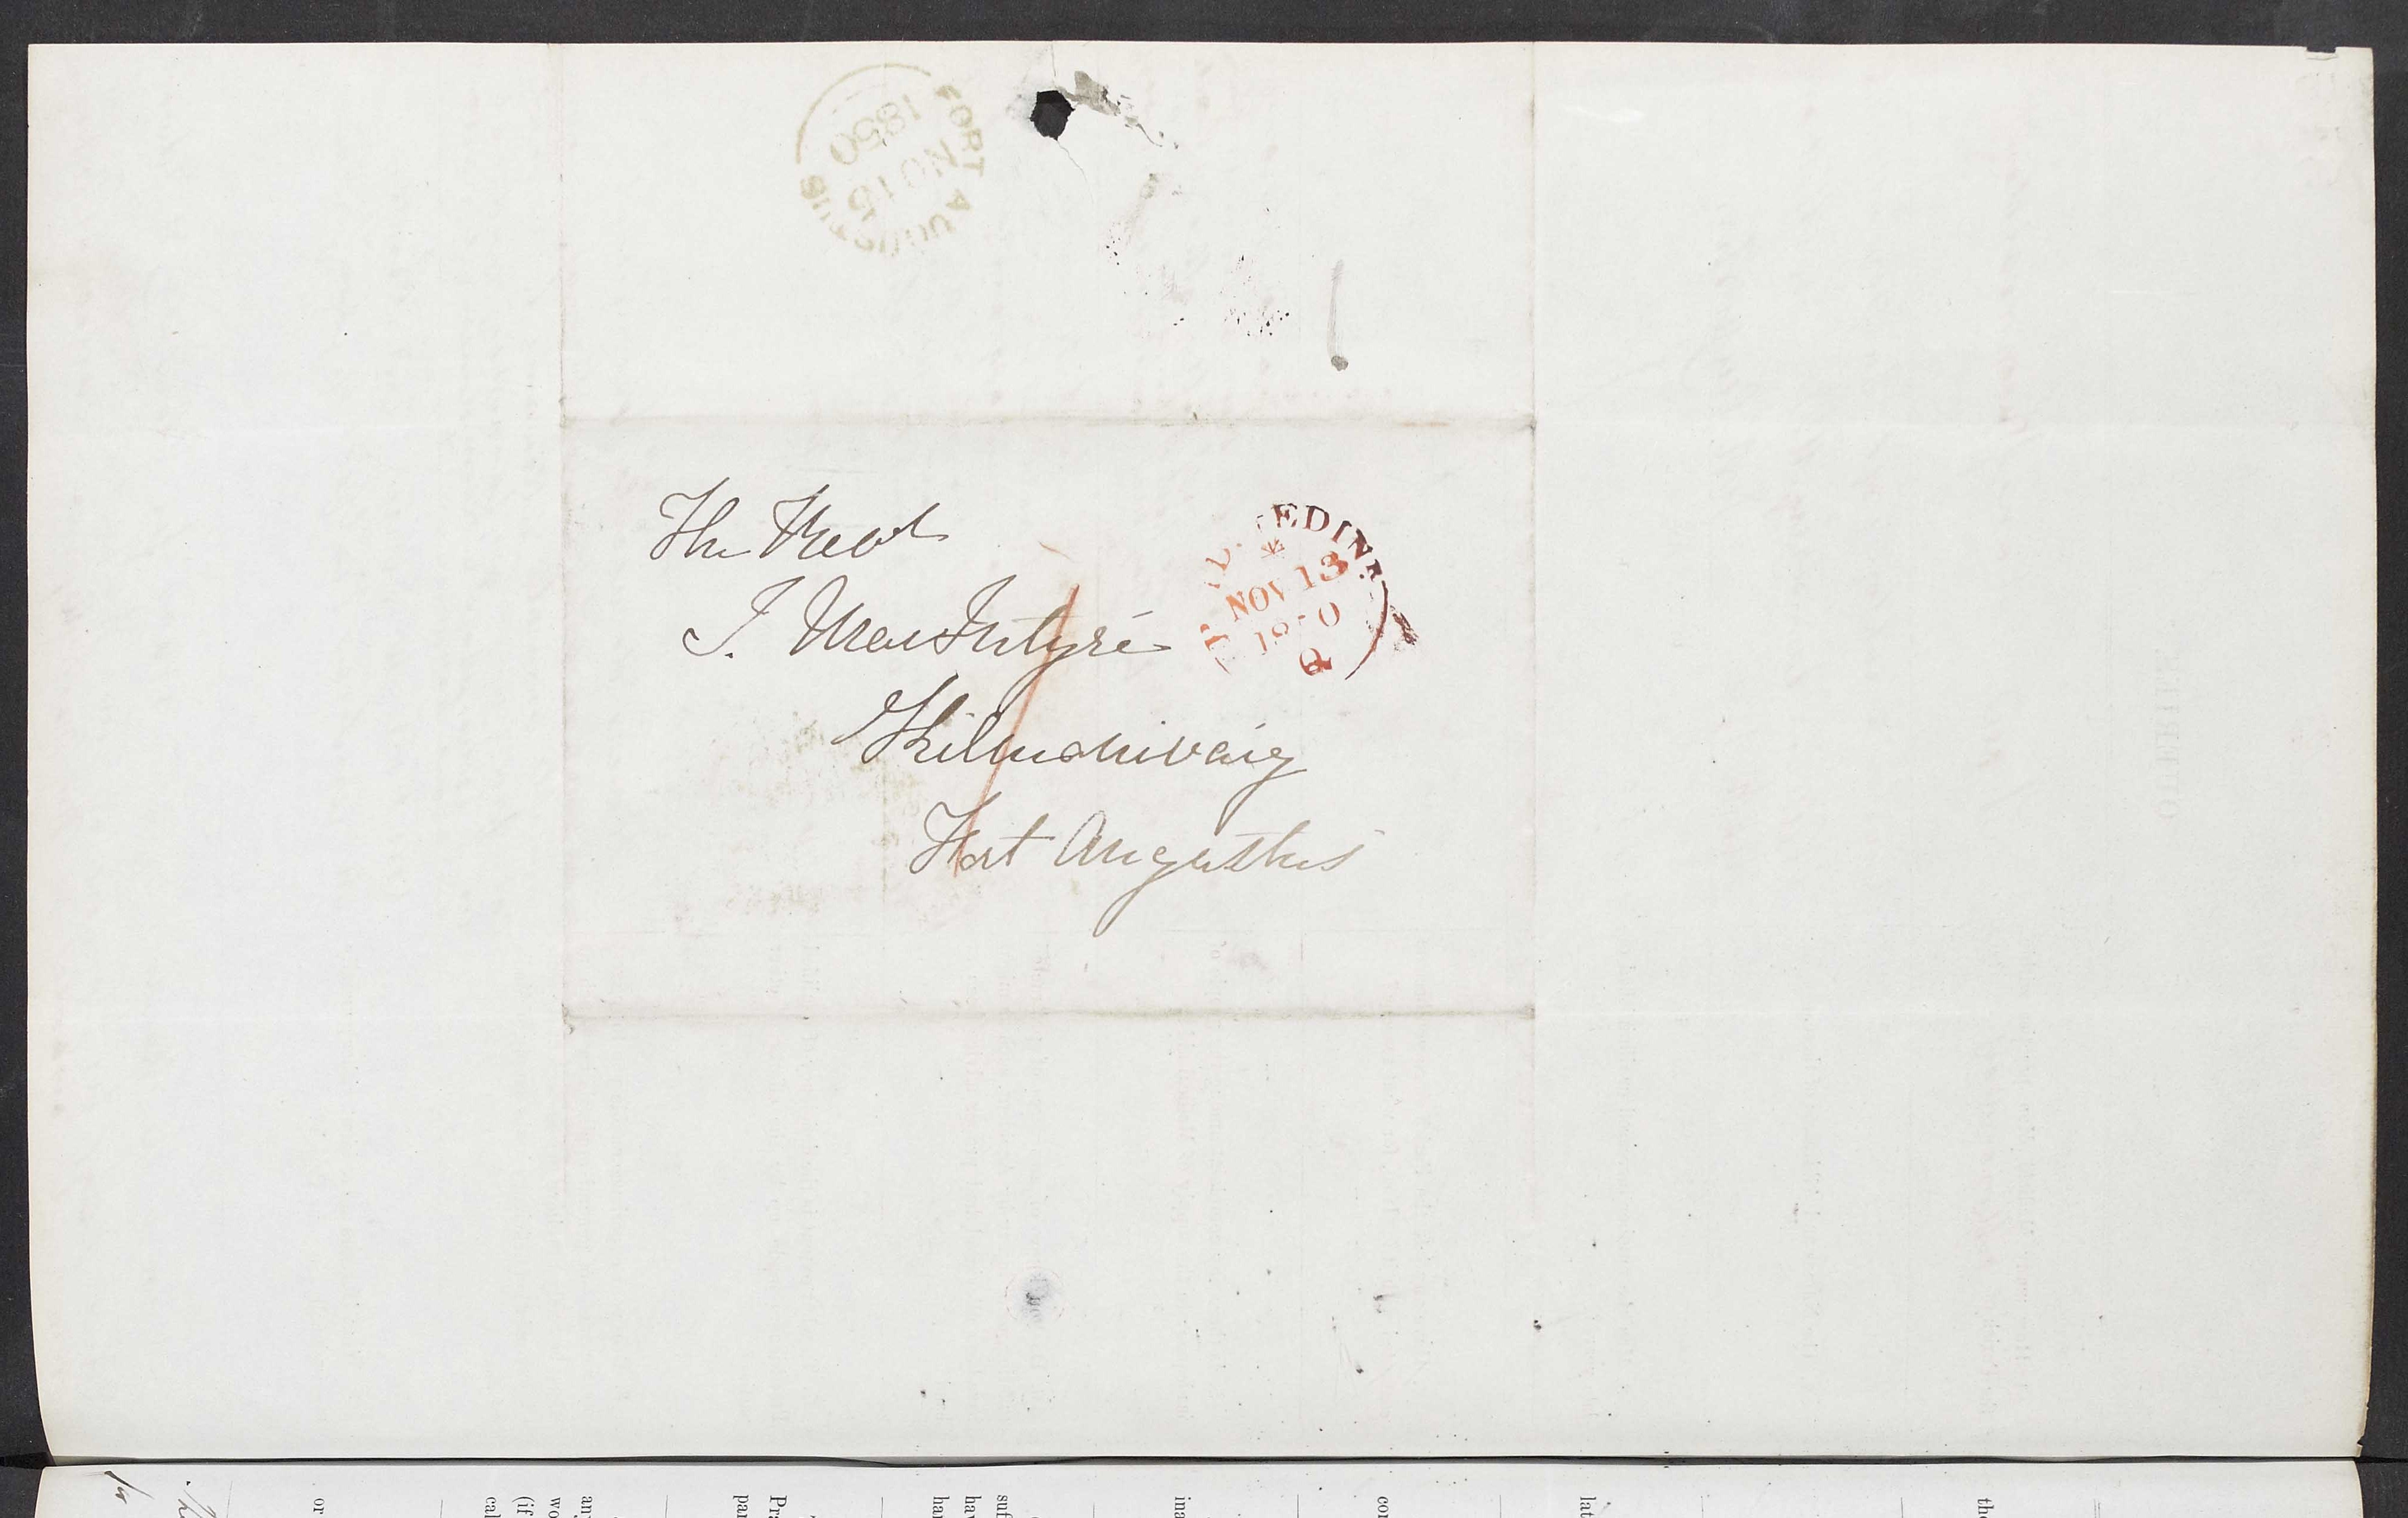 FORT AUGUSTUS
NO 15
1850
The Revd
J. MacIntyre
Kilmonivaig
Fort Augustus
EDINR
NOV 13
1850
Q
or
cal
(if
wo
an
par
Pra
han
hav
suf
ina
con
lat
the